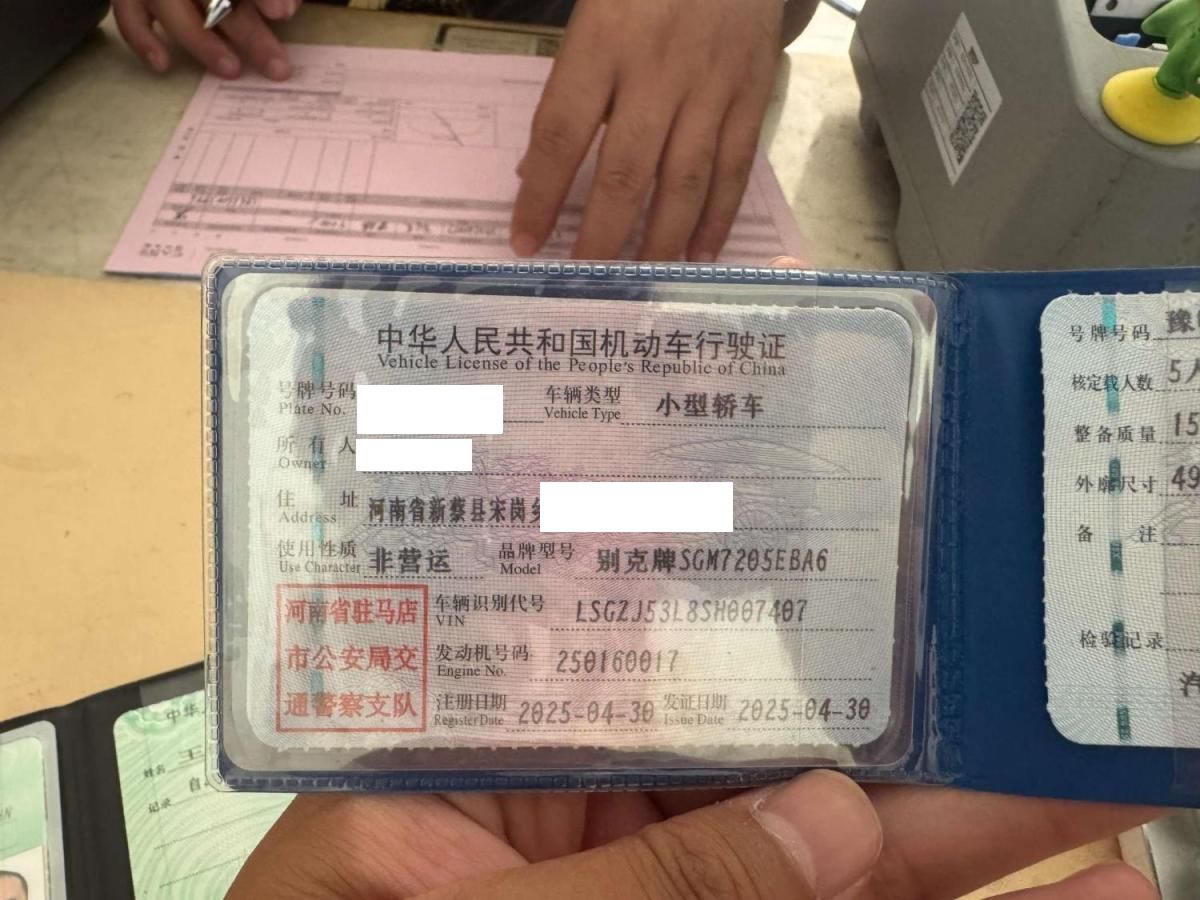 中华人民共和国机动车行驶证
Vehicle License of the People's Republic of China
号牌号码
Plate No.
车辆类型 小型轿车
Vehicle Type
所有人
Owner
住址 河南省新蔡县宋岗
Address
使用性质 非营运
Use Character
品牌型号 别克牌SGM7205EBA6
Model
河南省驻马店
市公安局交
通警察支队
车辆识别代号 LSGZJ53L8SH007407
VIN
发动机号码 250160017
Engine No.
注册日期 2025-04-30
Register Date
发证日期 2025-04-30
Issue Date
号牌号码 豫
核定载人数 5人
整备质量 15
外廓尺寸 49
备注
检验记录
中华人
姓名 王
记录 自